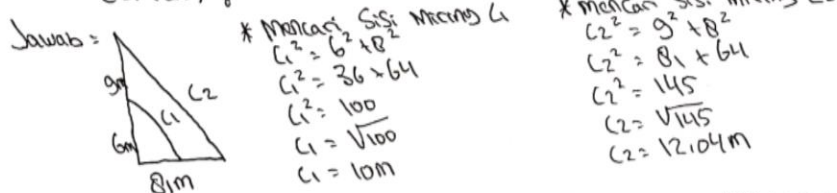 Jawab =
9m
C2
C1
6m
8m
* Mencari Sisi Miring C1
C1² = 6² + 8²
C1² = 36 + 64
C1² = 100
C1 = √100
C1 = 10m
* Mencari
C2² = 9² + 8²
C2² = 81 + 64
C2² = 145
C2 = √145
C2 = 12.04m